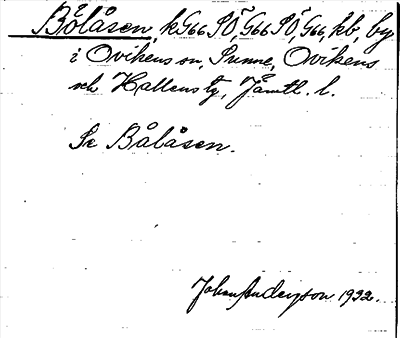 Bölåsen, kG66SÖ, G66SÖ, G66, kb, by
i Ovikens sn, Sunne, Ovikens
och Hallens tg, Jämtl. l.
Se Bålåsen.
Johan Anderson 1932.